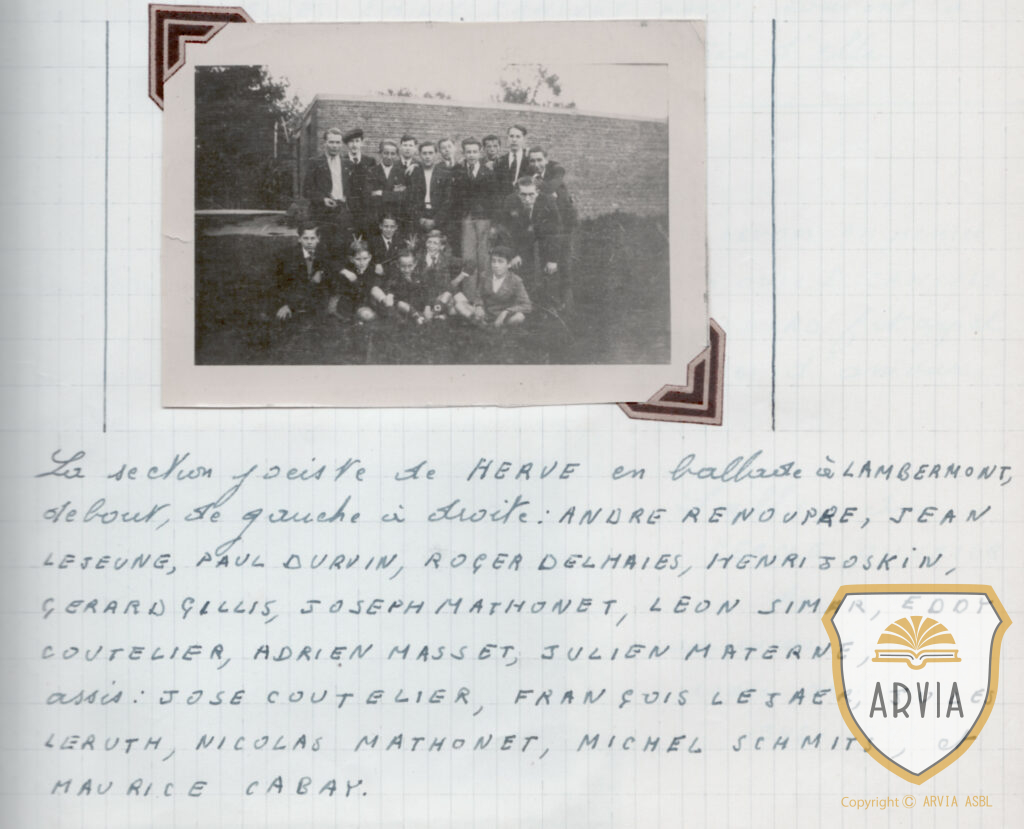 La section jociste de HERVE en ballade à LAMBERMONT,
debout, de gauche à droite: ANDRE RENOUPRE, JEAN
LEJEUNE, PAUL DURVIN, ROGER DELHAIES, HENRI JOSKIN,
GERARD GILLIS, JOSEPH MATHONET, LEON SIMAR, EDDY
COUTELIER, ADRIEN MASSET, JULIEN MATERNE,
assis: JOSE COUTELIER, FRANÇOIS LEJAER,
LERUTH, NICOLAS MATHONET, MICHEL SCHMITZ, et
MAURICE CABAY.
ARVIA
Copyright © ARVIA ASBL